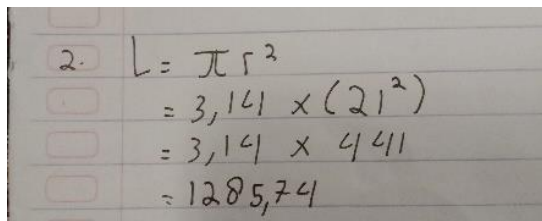 2. L = πr²
= 3,14 × (21²)
= 3,14 × 441
= 1285,74